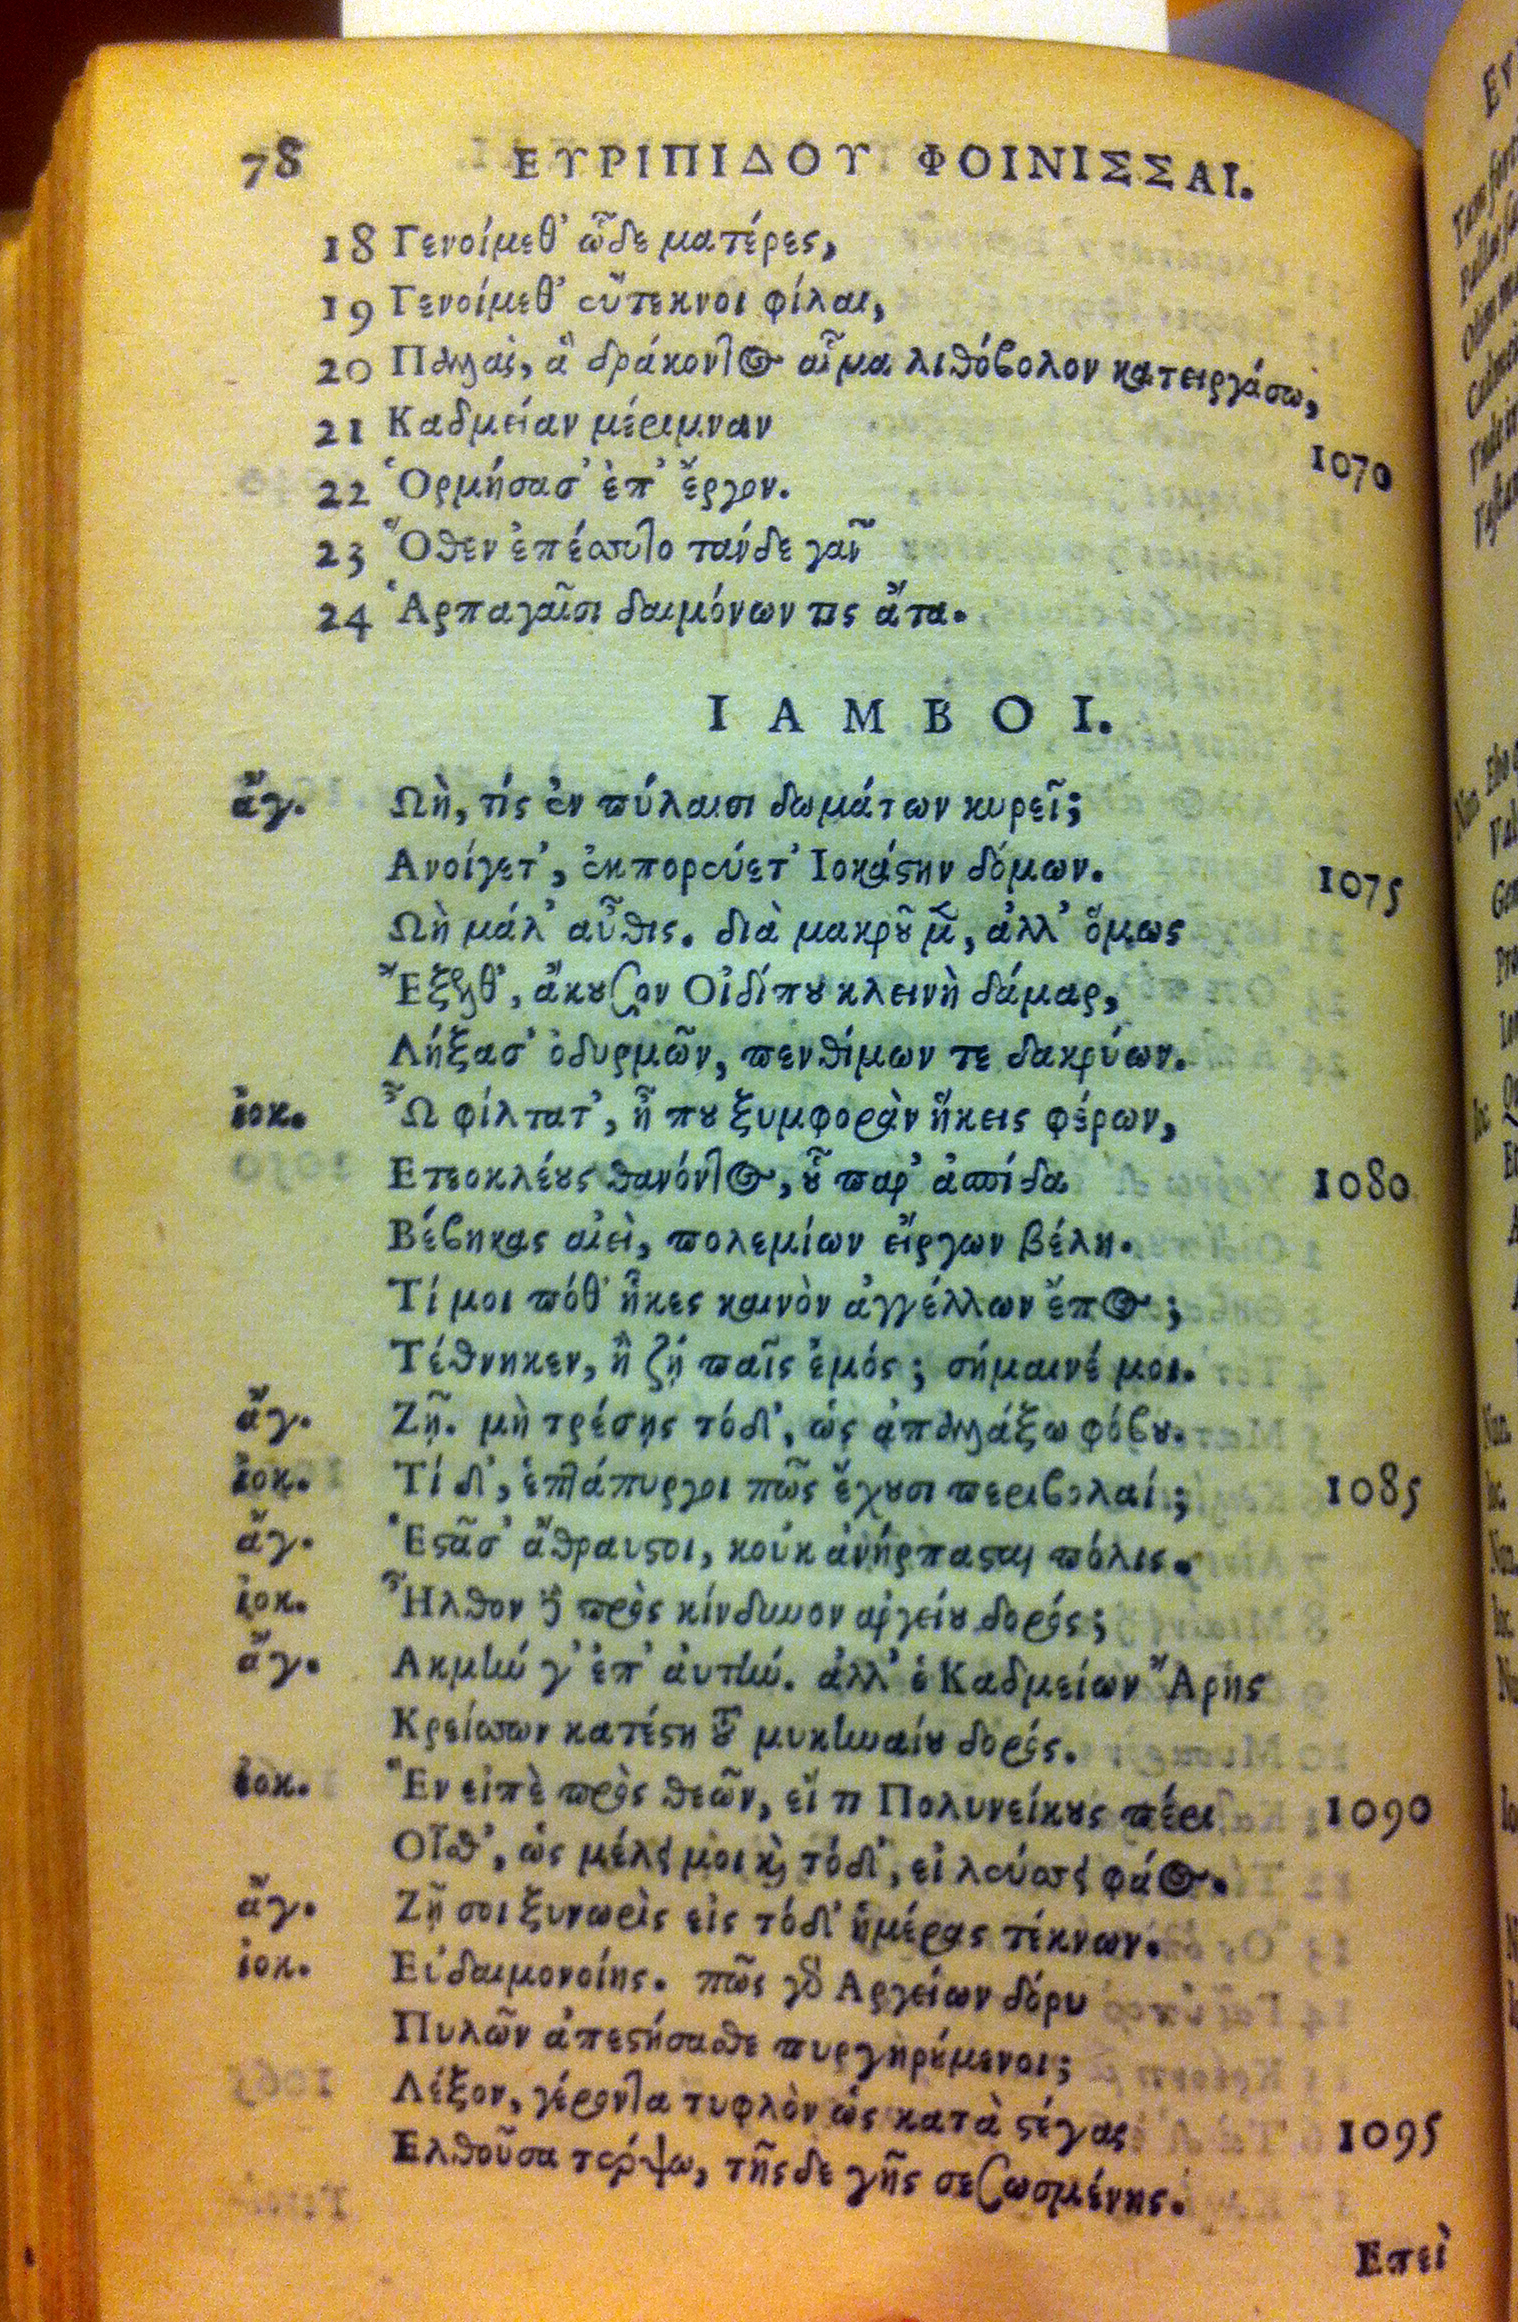 78 ΕΥΡΙΠΙΔΟΥ ΦΟΙΝΙΣΣΑΙ.
18 Γενοίμεθ' ὧδε ματέρες,
19 Γενοίμεθ' εὔτεκνοι φίλαι,
20 Παλλὰς, ἃ δράκοντος αἷμα λιθόβολον κατειργάσω,
21 Καδμείαν μέριμναν
1070
22 Ὁρμήσασ' ἐπ' ἔργον.
23 Ὅθεν ἐπέσσυτο τάνδε γᾶν
24 Ἁρπαγαῖσι δαιμόνων τις ἄτα.
ΙΑΜΒΟΙ.
ἄγ. Ωὴ, τίς ἐν πύλαισι δωμάτων κυρεῖ;
Ανοίγετ', ἐκπορεύετ' Ιοκάστην δόμων. 1075
Ωὴ μάλ' αὖθις. διὰ μακροῦ μὲν, ἀλλ' ὅμως
Ἔξελθ', ἄκουσον Οἰδίπου κλεινὴ δάμαρ,
Λήξασ' ὀδυρμῶν, πενθίμων τε δακρύων.
ἰοκ. Ὦ φίλτατ', ἦ που ξυμφορὰν ἥκεις φέρων,
Ετεοκλέους θανόντος, οὗ παρ' ἀσπίδα 1080
Βέβηκας αἰεὶ, πολεμίων εἴργων βέλη.
Τί μοι πόθ' ἧκες καινὸν ἀγγέλλων ἔπος;
Τέθνηκεν, ἢ ζῇ παῖς ἐμός; σήμαινέ μοι.
ἄγ. Ζῇ. μὴ τρέσῃς τόδ', ὡς ἀπαλλάξω φόβου.
ἰοκ. Τί δ', ἑπτάπυργοι πῶς ἔχουσι περιβολαί; 1085
ἄγ. Ἑστᾶσ' ἄθραυστοι, κοὐκ ἀνήρπασται πόλις.
ἰοκ. Ἦλθον δὲ πρὸς κίνδυνον ἀργείου δορός;
ἄγ. Ακμὴν γ' ἐπ' ἀυτὴν. ἀλλ' ὁ Καδμείων Ἄρης
Κρείσσων κατέστη τοῦ μυκηναίου δορός.
ἰοκ. Ἓν εἰπὲ πρὸς θεῶν, εἴ τι Πολυνείκους πέρι 1090
Οἶσθ', ὡς μέλει μοι καὶ τόδ', εἰ λεύσσει φάος.
ἄγ. Ζῇ σοι ξυνωρὶς εἰς τόδ' ἡμέρας τέκνων.
ἰοκ. Εὐδαιμονοίης. πῶς γὰρ Αργείων δόρυ
Πυλῶν ἀπεστήσασθε πυργηρούμενοι;
Λέξον, γέροντα τυφλὸν ὡς κατὰ στέγας 1095
Ελθοῦσα τέρψω, τῆςδε γῆς σεσωσμένης.
Επεὶ